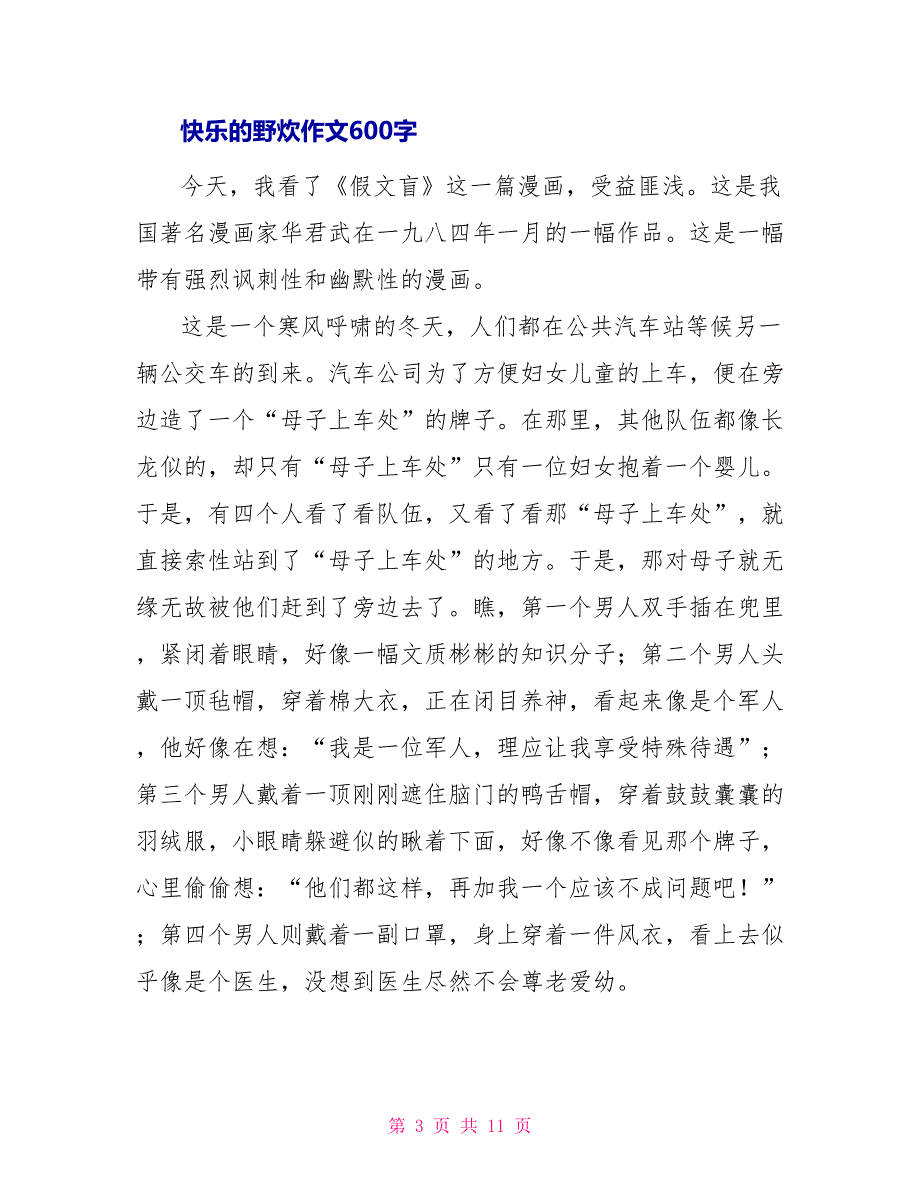 快乐的野炊作文600字
今天，我看了《假文盲》这一篇漫画，受益匪浅。这是我
国著名漫画家华君武在一九八四年一月的一幅作品。这是一幅
带有强烈讽刺性和幽默性的漫画。
这是一个寒风呼啸的冬天，人们都在公共汽车站等候另一
辆公交车的到来。汽车公司为了方便妇女儿童的上车，便在旁
边造了一个“母子上车处”的牌子。在那里，其他队伍都像长
龙似的，却只有“母子上车处”只有一位妇女抱着一个婴儿。
于是，有四个人看了看队伍，又看了看那“母子上车处”，就
直接索性站到了“母子上车处”的地方。于是，那对母子就无
缘无故被他们赶到了旁边去了。瞧，第一个男人双手插在兜里
，紧闭着眼睛，好像一幅文质彬彬的知识分子；第二个男人头
戴一顶毡帽，穿着棉大衣，正在闭目养神，看起来像是个军人
，他好像在想：“我是一位军人，理应让我享受特殊待遇”；
第三个男人戴着一顶刚刚遮住脑门的鸭舌帽，穿着鼓鼓囊囊的
羽绒服，小眼睛躲避似的瞅着下面，好像不像看见那个牌子，
心里偷偷想：“他们都这样，再加我一个应该不成问题吧！”
；第四个男人则戴着一副口罩，身上穿着一件风衣，看上去似
乎像是个医生，没想到医生尽然不会尊老爱幼。
第 3 页 共 11 页